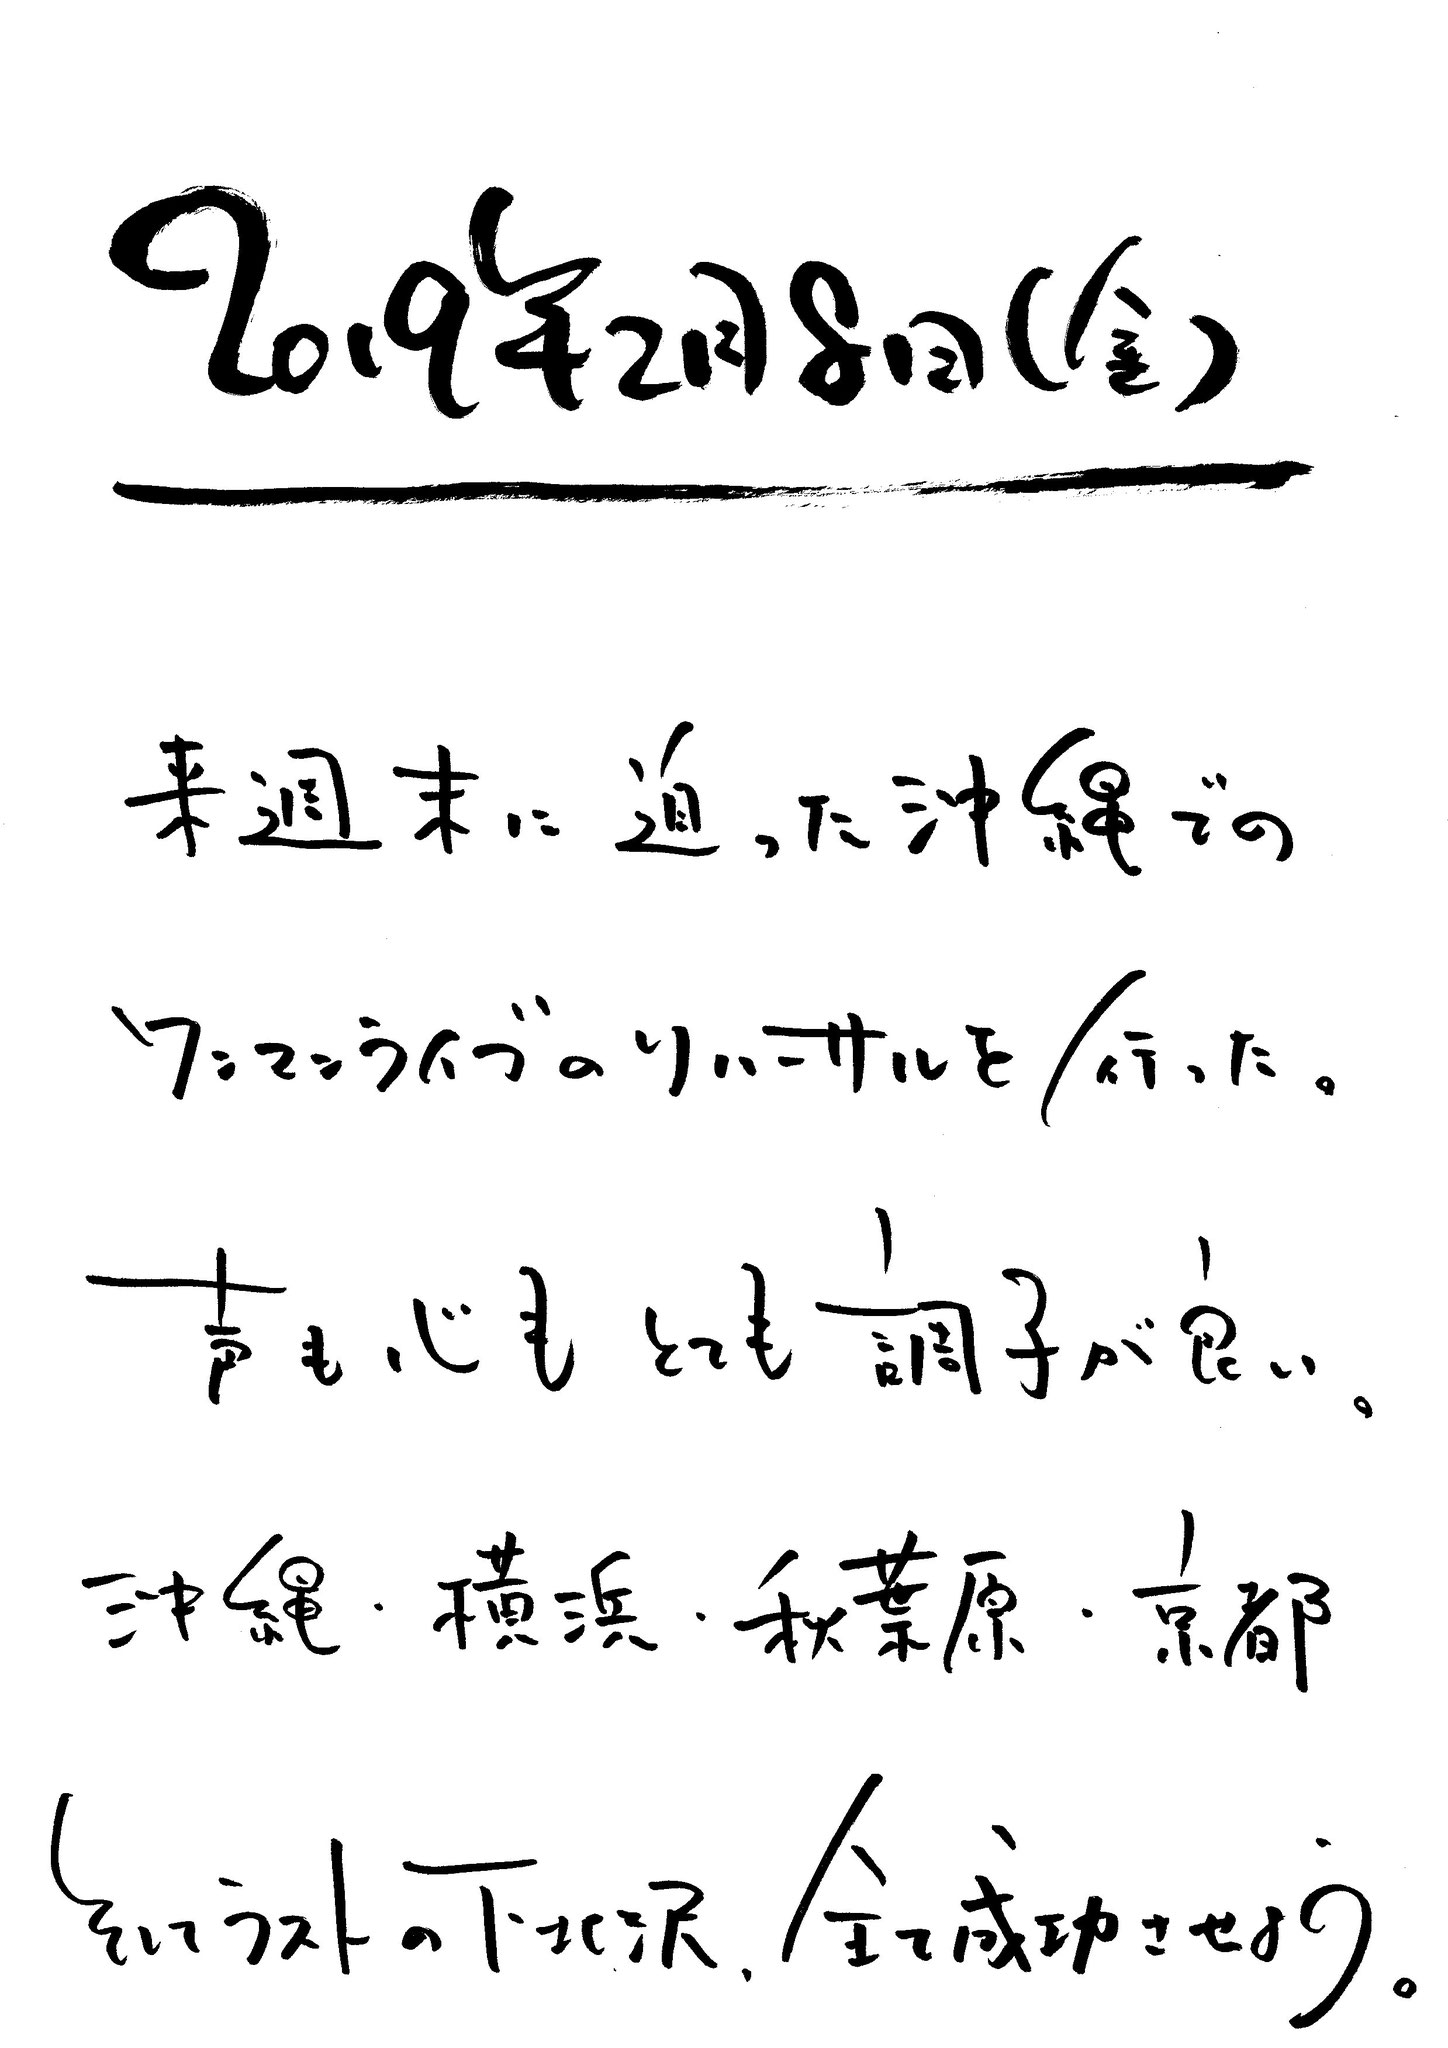 2019年2月8日(金)
来週末に迫った沖縄での
ワンマンライブのリハーサルを行った。
声も心もとても調子が良い。
沖縄・横浜・秋葉原・京都
そしてラストの下北沢、全て成功させよう。